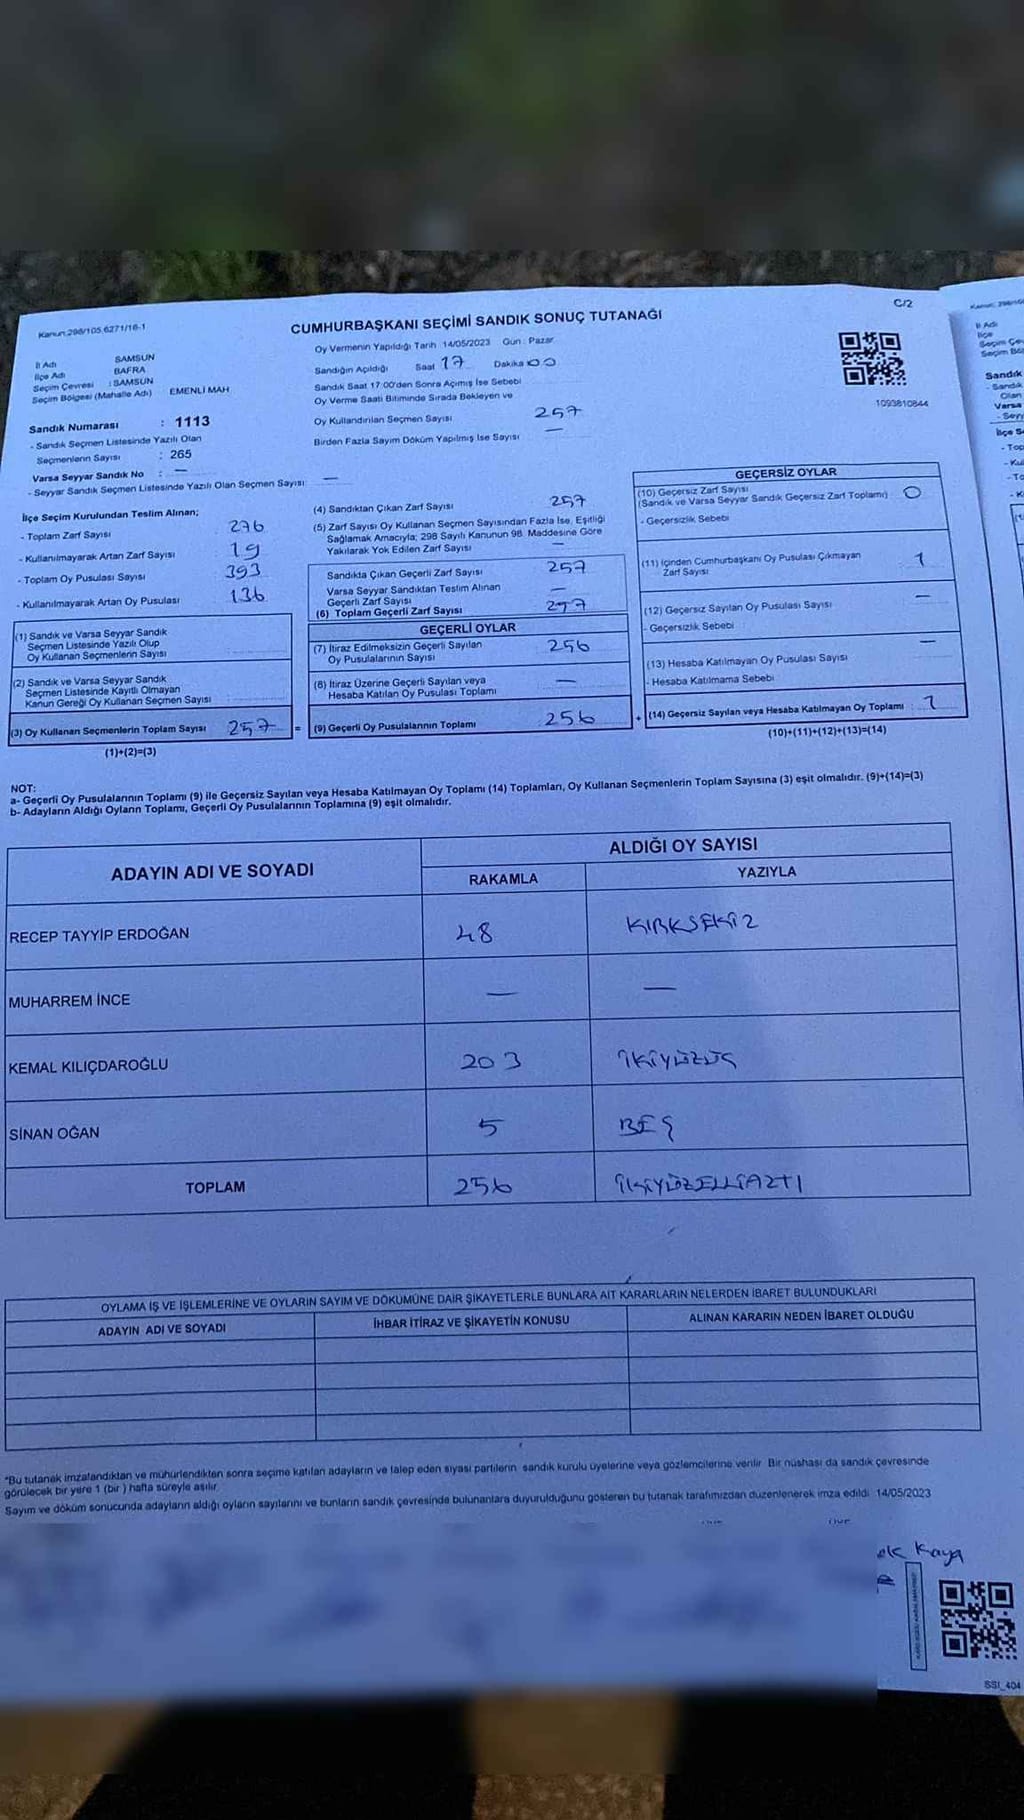 Kanun:298/105,6271/16-1
CUMHURBAŞKANI SEÇİMİ SANDIK SONUÇ TUTANAĞI
C/2
İl Adı SAMSUN
İlçe Adı BAFRA
Seçim Çevresi : SAMSUN
Seçim Bölgesi (Mahalle Adı) EMENLİ MAH
Sandık Numarası : 1113
- Sandık Seçmen Listesinde Yazılı Olan
Seçmenlerin Sayısı : 265
Varsa Seyyar Sandık No : —
- Seyyar Sandık Seçmen Listesinde Yazılı Olan Seçmen Sayısı —
Oy Vermenin Yapıldığı Tarih 14/05/2023 Gün : Pazar
Sandığın Açıldığı Saat 17 Dakika 00
Sandık Saat 17.00'den Sonra Açımış İse Sebebi
Oy Verme Saati Bitiminde Sırada Bekleyen ve
Oy Kullandırılan Seçmen Sayısı 257
Birden Fazla Sayım Döküm Yapılmış İse Sayısı —
1093810844
İlçe Seçim Kurulundan Teslim Alınan;
- Toplam Zarf Sayısı 276
- Kullanılmayarak Artan Zarf Sayısı 19
- Toplam Oy Pusulası Sayısı 393
- Kullanılmayarak Artan Oy Pusulası 136
(1) Sandık ve Varsa Seyyar Sandık
Seçmen Listesinde Yazılı Olup
Oy Kullanan Seçmenlerin Sayısı
(2) Sandık ve Varsa Seyyar Sandık
Seçmen Listesinde Kayıtlı Olmayan
Kanun Gereği Oy Kullanan Seçmen Sayısı
(3) Oy Kullanan Seçmenlerin Toplam Sayısı 257 =
(1)+(2)=(3)
(4) Sandıktan Çıkan Zarf Sayısı 257
(5) Zarf Sayısı Oy Kullanan Seçmen Sayısından Fazla İse, Eşitliği
Sağlamak Amacıyla; 298 Sayılı Kanunun 98. Maddesine Göre
Yakılarak Yok Edilen Zarf Sayısı —
Sandıkta Çıkan Geçerli Zarf Sayısı 257
Varsa Seyyar Sandıktan Teslim Alınan
Geçerli Zarf Sayısı —
(6) Toplam Geçerli Zarf Sayısı 257
GEÇERLİ OYLAR
(7) İtiraz Edilmeksizin Geçerli Sayılan
Oy Pusulalarının Sayısı 256
(8) İtiraz Üzerine Geçerli Sayılan veya
Hesaba Katılan Oy Pusulası Toplamı —
(9) Geçerli Oy Pusulalarının Toplamı 256 +
GEÇERSİZ OYLAR
(10) Geçersiz Zarf Sayısı
(Sandık ve Varsa Seyyar Sandık Geçersiz Zarf Toplamı) 0
- Geçersizlik Sebebi
(11) İçinden Cumhurbaşkanı Oy Pusulası Çıkmayan
Zarf Sayısı 1
(12) Geçersiz Sayılan Oy Pusulası Sayısı —
- Geçersizlik Sebebi
(13) Hesaba Katılmayan Oy Pusulası Sayısı —
- Hesaba Katılmama Sebebi
(14) Geçersiz Sayılan veya Hesaba Katılmayan Oy Toplamı : 1
(10)+(11)+(12)+(13)=(14)
NOT:
a- Geçerli Oy Pusulalarının Toplamı (9) ile Geçersiz Sayılan veya Hesaba Katılmayan Oy Toplamı (14) Toplamları, Oy Kullanan Seçmenlerin Toplam Sayısına (3) eşit olmalıdır. (9)+(14)=(3)
b- Adayların Aldığı Oyların Toplamı, Geçerli Oy Pusulalarının Toplamına (9) eşit olmalıdır.
ADAYIN ADI VE SOYADI ALDIĞI OY SAYISI
RAKAMLA YAZIYLA
RECEP TAYYİP ERDOĞAN 48 KIRKSEKİZ
MUHARREM İNCE — —
KEMAL KILIÇDAROĞLU 203 İKİYÜZÜÇ
SİNAN OĞAN 5 BEŞ
TOPLAM 256 İKİYÜZELLİALTI
OYLAMA İŞ VE İŞLEMLERİNE VE OYLARIN SAYIM VE DÖKÜMÜNE DAİR ŞİKAYETLERLE BUNLARA AİT KARARLARIN NELERDEN İBARET BULUNDUKLARI
ADAYIN ADI VE SOYADI İHBAR İTİRAZ VE ŞİKAYETİN KONUSU ALINAN KARARIN NEDEN İBARET OLDUĞU
*Bu tutanak imzalandıktan ve mühürlendikten sonra seçime katılan adayların ve talep eden siyasi partilerin sandık kurulu üyelerine veya gözlemcilerine verilir. Bir nüshası da sandık çevresinde
görülecek bir yere 1 (bir ) hafta süreyle asılır.
Sayım ve döküm sonucunda adayların aldığı oyların sayılarını ve bunların sandık çevresinde bulunanlara duyurulduğunu gösteren bu tutanak tarafımızdan düzenlenerek imza edildi. 14/05/2023
Kaya
SSI_404
İl Adı
İlçe
Sandık
- Sandık
Olan
Varsa